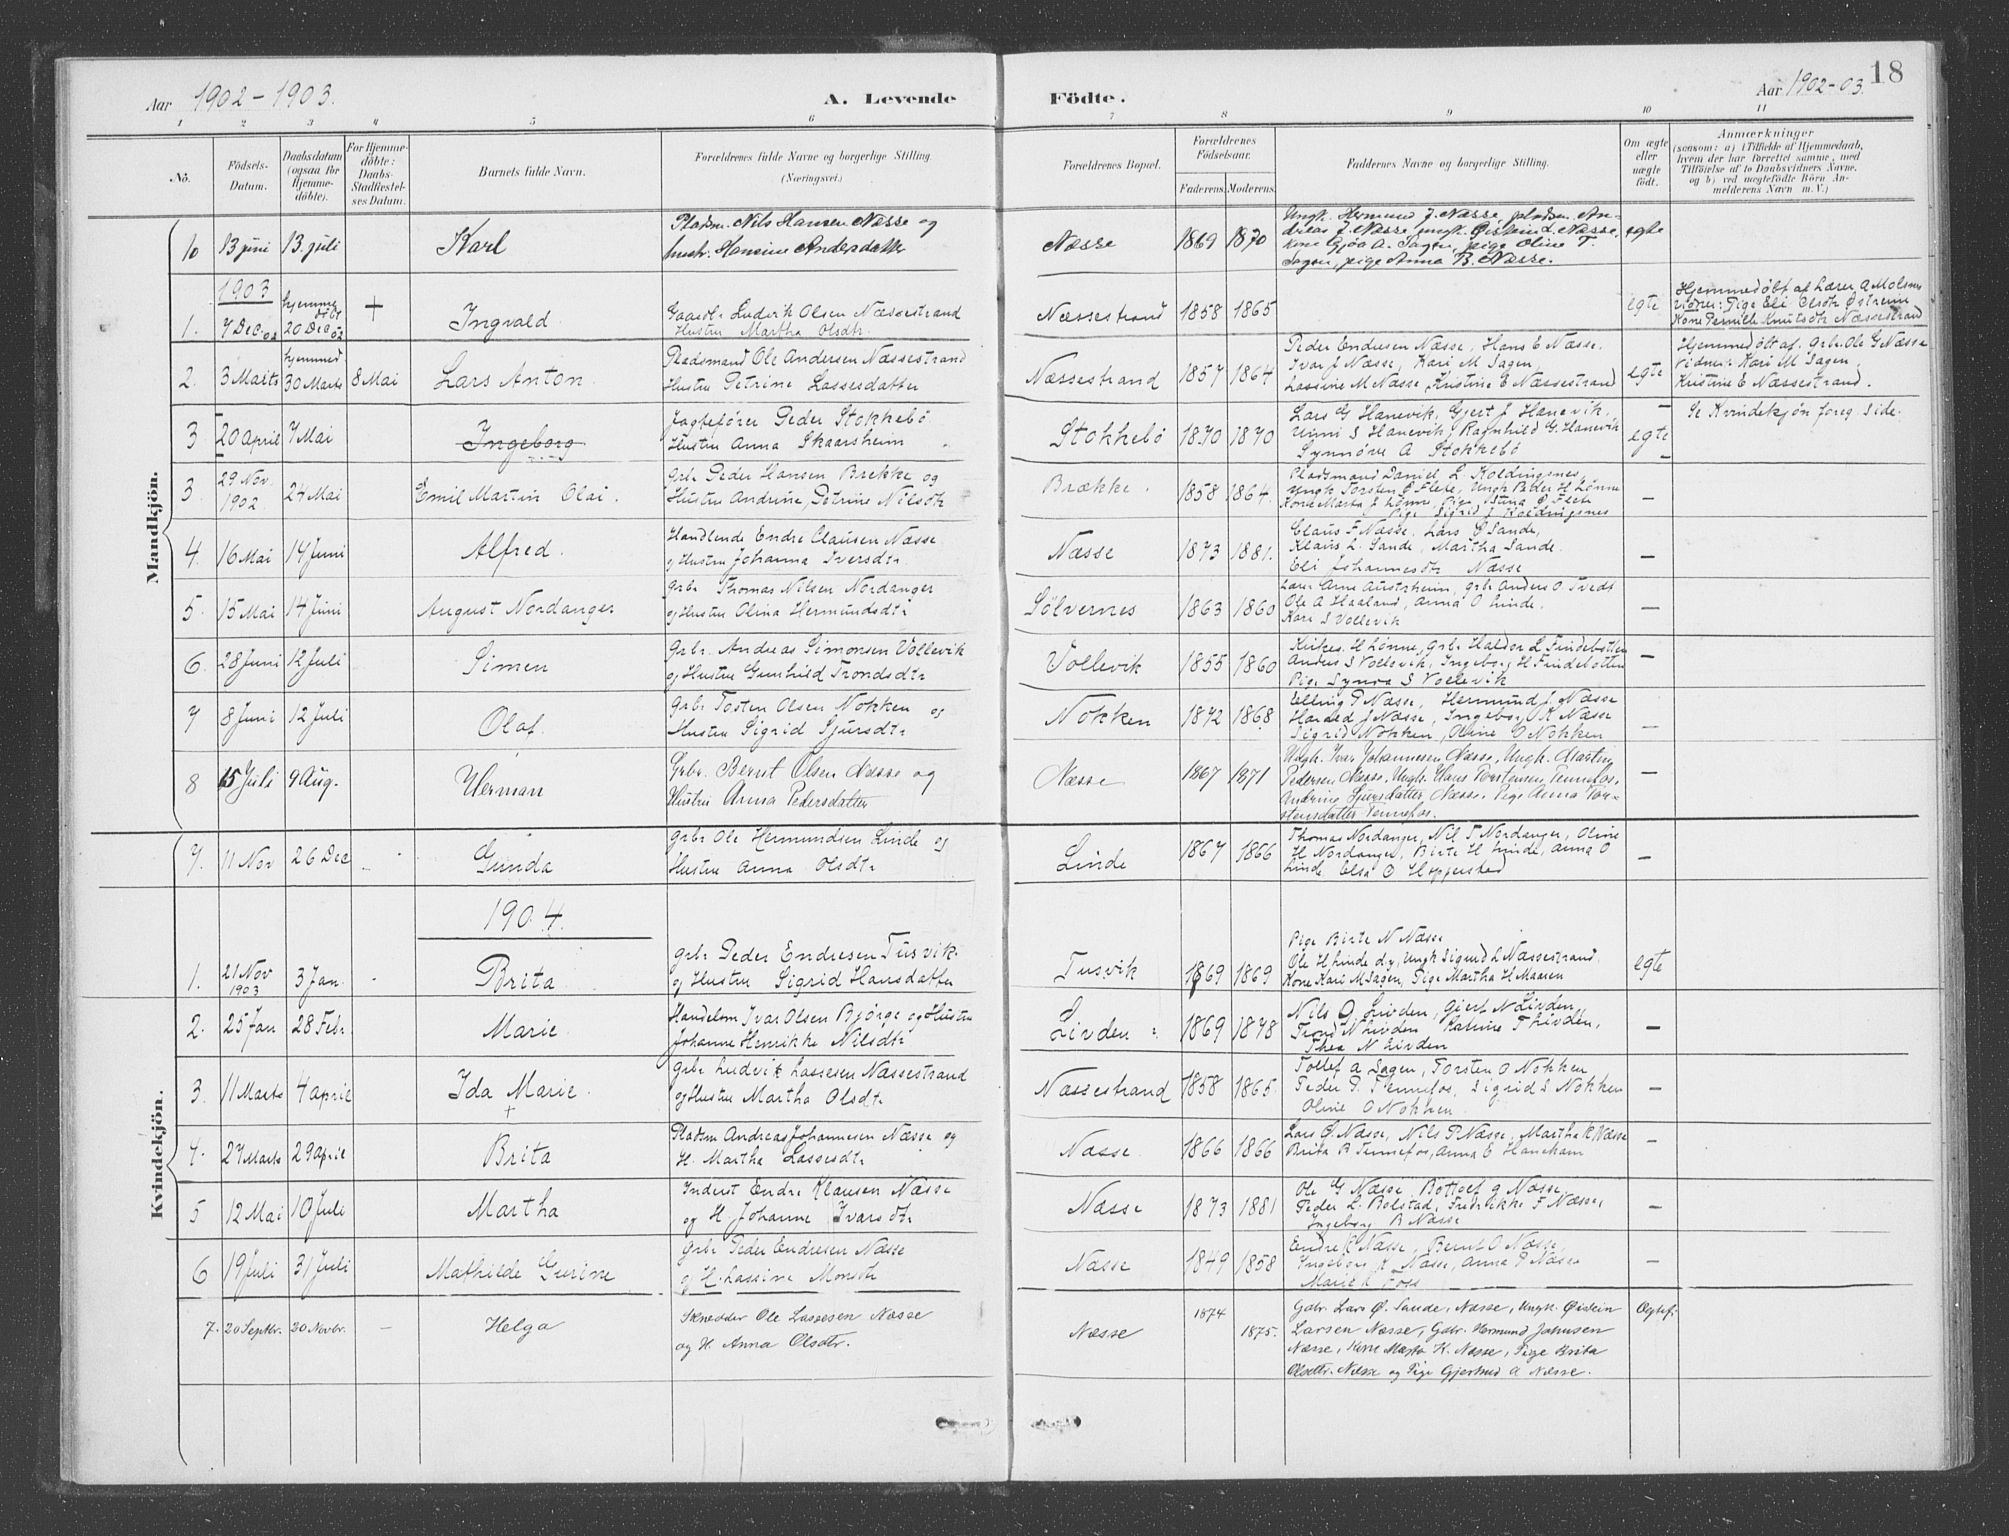 Aar 1902-1903. A. Levende Födte. Aar 1902-03. 18
1 2 3 4 5 6 7 8 9 10 11
No. Födsels-Datum. Daabsdatum (ogsaa for Hjemme-döbte). For Hjemme-döbte: Daabs-Stadfæstel-ses Datum. Barnets fulde Navn. Forældrenes fulde Navne og borgerlige Stilling. (Næringsvei.) Forældrenes Bopæl. Forældrenes Födselsaar. Faderens. Moderens. Faddernes Navne og borgerlige Stilling. Om ægte eller uægte födt. Anmærkninger
(saasom: a) i Tilfælde af Hjemmedaab,
hvem der har forrettet samme, med
Tilföielse af to Daabsvidners Navne,
og b) ved uægtefödte Börn An-
melderens Navn m. V.)
Mandkjön.
10 13 juni 13. juli Karl
Pladsm. Nils Hansen Næsse og
hustr. Hansine Andersdatter
Næsse 1869 1870
Ungk. Hermund J. Næsse, pladsm. An-
dreas J. Næsse, ungk. Øistein L. Næsse,
kone Gjøa A. Sagen, pige Oline T.
Sagen, pige Anna B. Næsse.
egte
1903
1. 7 Dec. 02 hjemme döbt 20 Dec 02 + Ingvald.
Gaardbr Ludvik Olsen Næssestrand
Hustru Martha Olsdtr.
Næssestrand 1858 1865 egte
Hjemmedöbt af Lærer A Molsnes
vidner: Pige Eli Olsdtr Østreim
Kone Pernille Knutsdtr Næssestrand
2. 3 Marts hjemmed 30 Marts 8 Mai Lars Anton.
Pladsmand Ole Andersen Næssestrand
Hustru Petrine Lassesdatter
Næssestrand 1857 1864
Peder Endresen Næsse, Hans E Næsse.
Ivar J Næsse, Kari M Sagen,
Lassine M Næsse, Kristine E Næssestrand
egte
Hjemmedöbt af. grbr. Ole G Næsse
vidner. Kari M Sagen.
Kristine E Næssestrand.
3 20 april 7 Mai Ingeborg
Jagtefører Peder Stokkebö
Hustru Anna Skaarsheim
Stokkebö 1870 1870
Lars G Hanevik, Gjert J Hanevik,
Unni S Hanevik, Ragnhild G. Hanevik
Synnöve A Stokkebö
egte
Se Kvindekjön foreg. Side.
3. 29 Nov. 1902 24 Mai Emil Martin Olai.
Grbr Peder Hansen Brekke og
Hustru Andrine, Petrine Nilsdtr
Brække. 1858 1864.
Pladsmand Daniel L Koldingsnes
Ungk Torsten O Flete, Ungk Peder H Lönne
Kone Marta J Lönne, Pige Stina O Flete
Pige Sigrid J Koldingsnes
—
4. 16 Mai 14 Juni Alfred.
Handlende Endre Clausen Næsse
og Hustru Johanna Iversdtr
Næsse 1873 1881.
Claus F Næsse, Lars Ø Sande,
Klaus L. Sande, Martha Sande.
Eli Johannesdtr Næsse
—
5. 15 Mai 14 Juni August Nordanger
Grbr Thomas Nilsen Nordanger
og Hustru Olina Hermundsdtr
Sölvernes 1863 1860
Lærer Arne Austrheim, grbr Anders O Tvedt
Ole A Haaland, Anna O Linde.
Kari S Vollevik
—
6. 28 Juni 12 Juli Simen
Grbr. Andreas Simonsen Vollevik
og Hustru Gunhild Trondsdtr
Vollevik 1855 1860
Kirkes. H Lönne, Grbr Haldor L Findebotten
Anders S Vollevik, Ingeborg H Findebotten
Pige Synva S Vollevik
—
7 8 Juni 12 Juli Olaf.
Grbr Tosten Olsen Nokken og
Hustru Sigrid Sjursdtr
Nokken 1872 1868
Elling P Næsse, Hermund J. Næsse
Harald J Næsse, Ingeborg K Næsse
Sigrid Nokken, Oline O Nokken
—
8 15 Juli 9 Aug. Herman
Grbr. Bernt Olsen Næsse og
Hustru Anna Pedersdatter
Næsse 1867 1871
Ungk. Ivar Johannesen Næsse, Ungk. Martin
Pedersen Næsse, Ungk. Hans Torstensen Tennefos,
Andrine Sjursdatter Næsse, Pige Anna Tor-
stensdatter Tennefos.
—
Kvindekjön.
7. 11 Nov 26 Dec Gunda
grbr Ole Hermundsen Linde og
Hustru Anna Olsdtr
Linde 1867 1866
Thomas Nordanger, Nil T Nordanger, Oline
H Nordanger, Birte H Linde, Anna O
Linde Elsa O Hopperstad
—
1904.
1. 21 Nov 1903 3 Jan. Brita
grbr Peder Endresen Tusvik
og Hustru Sigrid Hansdatter
Tusvik 1869 1869
Pige Birte N Næsse
Ole H Linde d.y, Ungk Sigurd L Næssestrand
Kone Kari M Sagen, Pige Martha H Maaren
egte
2. 25 Jan 28 Febr. Marie.
Handelsm Ivar Olsen Bjørge og Hustru
Johanne Henrikke Nilsdtr
Livden 1869 1878
Nils O. Livden, Gjert N Livden,
Trond N Livden Katrine T Livden,
Thea N Livden
—
3. 11 Marts 4 april Ida Marie. +
Grbr Ludvik Lassesen Næssestrand
og Hustru Martha Olsdtr
Næssestrand 1858 1865.
Tollef A Sagen, Torsten O Nokken
Peder P. Tennefos, Sigrid S Nokken
Oline O Nokken
—
4. 27 Marts 29 april Brita
Pladsm Andreas Johannesen Næsse og
H. Martha Lassesdtr
Næsse 1866 1866
Lars Ø Næsse, Nils P Næsse, Martha K Næsse
Brita B Tennefos, Anna E Hanekam
—
5 12 Mai 10 Juli Martha
Inderst Endre Klausen Næsse
og H. Johanne Ivarsdtr
Næsse 1873 1881
Ole G Næsse, Bottolf G Næsse
Peder L. Bolstad, Fredrikke F Næsse,
Ingeborg B Næsse
—
6 19 Juli 31 Juli Mathilde Gurine
Grbr Peder Endresen Næsse
og H. Lassine Monsdtr
Næsse 1849 1858
Endre K Næsse, Bernt O Næsse
Ingeborg K Næsse, Anna P Næsse
Marie K Foss
—
7. 20 Septbr. 20 Novbr. — Helga
Skrædder Ole Lassesen Næsse
og H. Anna Olsdtr.
Næsse 1874 1875.
Gdbr. Lars Ø. Sande, Næsse, Ungk. Øistein
Larsen Næsse, Gdbr. Hermund Johnsen
Næsse, Kone Marta K. Næsse, Pige Brita
Olsdtr. Næsse og Pige Gjertrud A Næsse.
Ægtef.